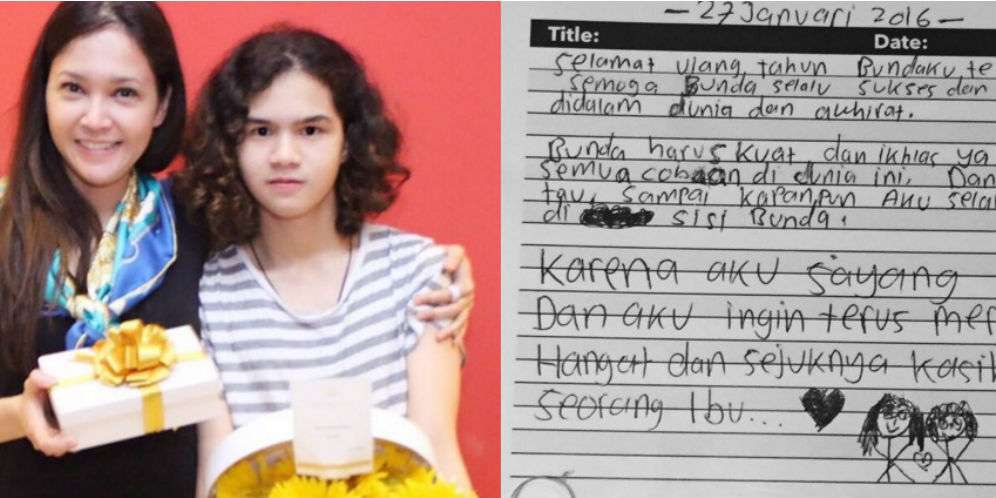 — 27 Januari 2016 —
Title: Date:
Selamat ulang tahun Bundaku, te
Semoga Bunda selalu sukses dan
didalam dunia dan akhirat.
Bunda harus kuat dan ikhlas ya
semua cobaan di dunia ini. Dan
tau, sampai kapanpun Aku selal
di sisi Bunda.
Karena aku sayang
Dan aku ingin terus mer
Hangat dan sejuknya kasih
seorang Ibu...